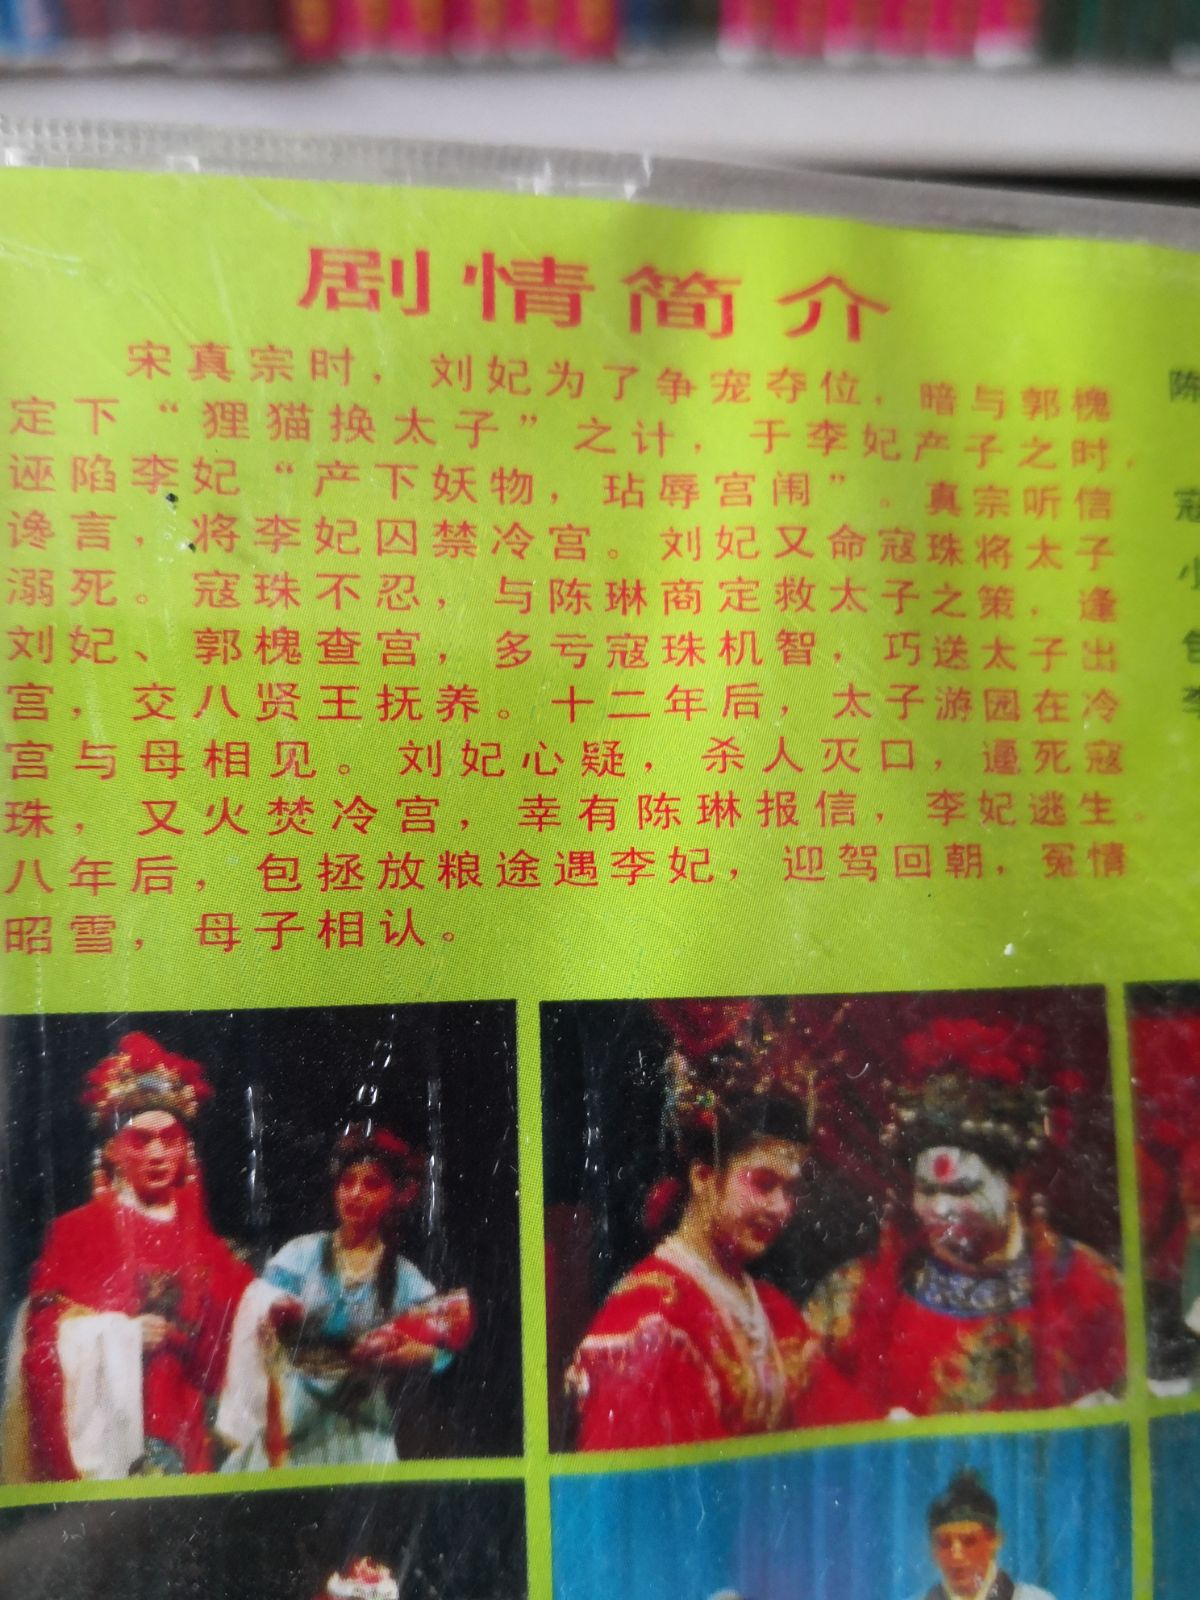 剧情简介
宋真宗时，刘妃为了争宠夺位，暗与郭槐
定下“狸猫换太子”之计，于李妃产子之时，
诬陷李妃“产下妖物，玷辱宫闱”。真宗听信
谗言，将李妃囚禁冷宫。刘妃又命寇珠将太子
溺死。寇珠不忍，与陈琳商定救太子之策，逢
刘妃、郭槐查宫，多亏寇珠机智，巧送太子出
宫，交八贤王抚养。十二年后，太子游园在冷
宫与母相见。刘妃心疑，杀人灭口，逼死寇
珠，又火焚冷宫，幸有陈琳报信，李妃逃生。
八年后，包拯放粮途遇李妃，迎驾回朝，冤情
昭雪，母子相认。
陈
寇
小
包
李